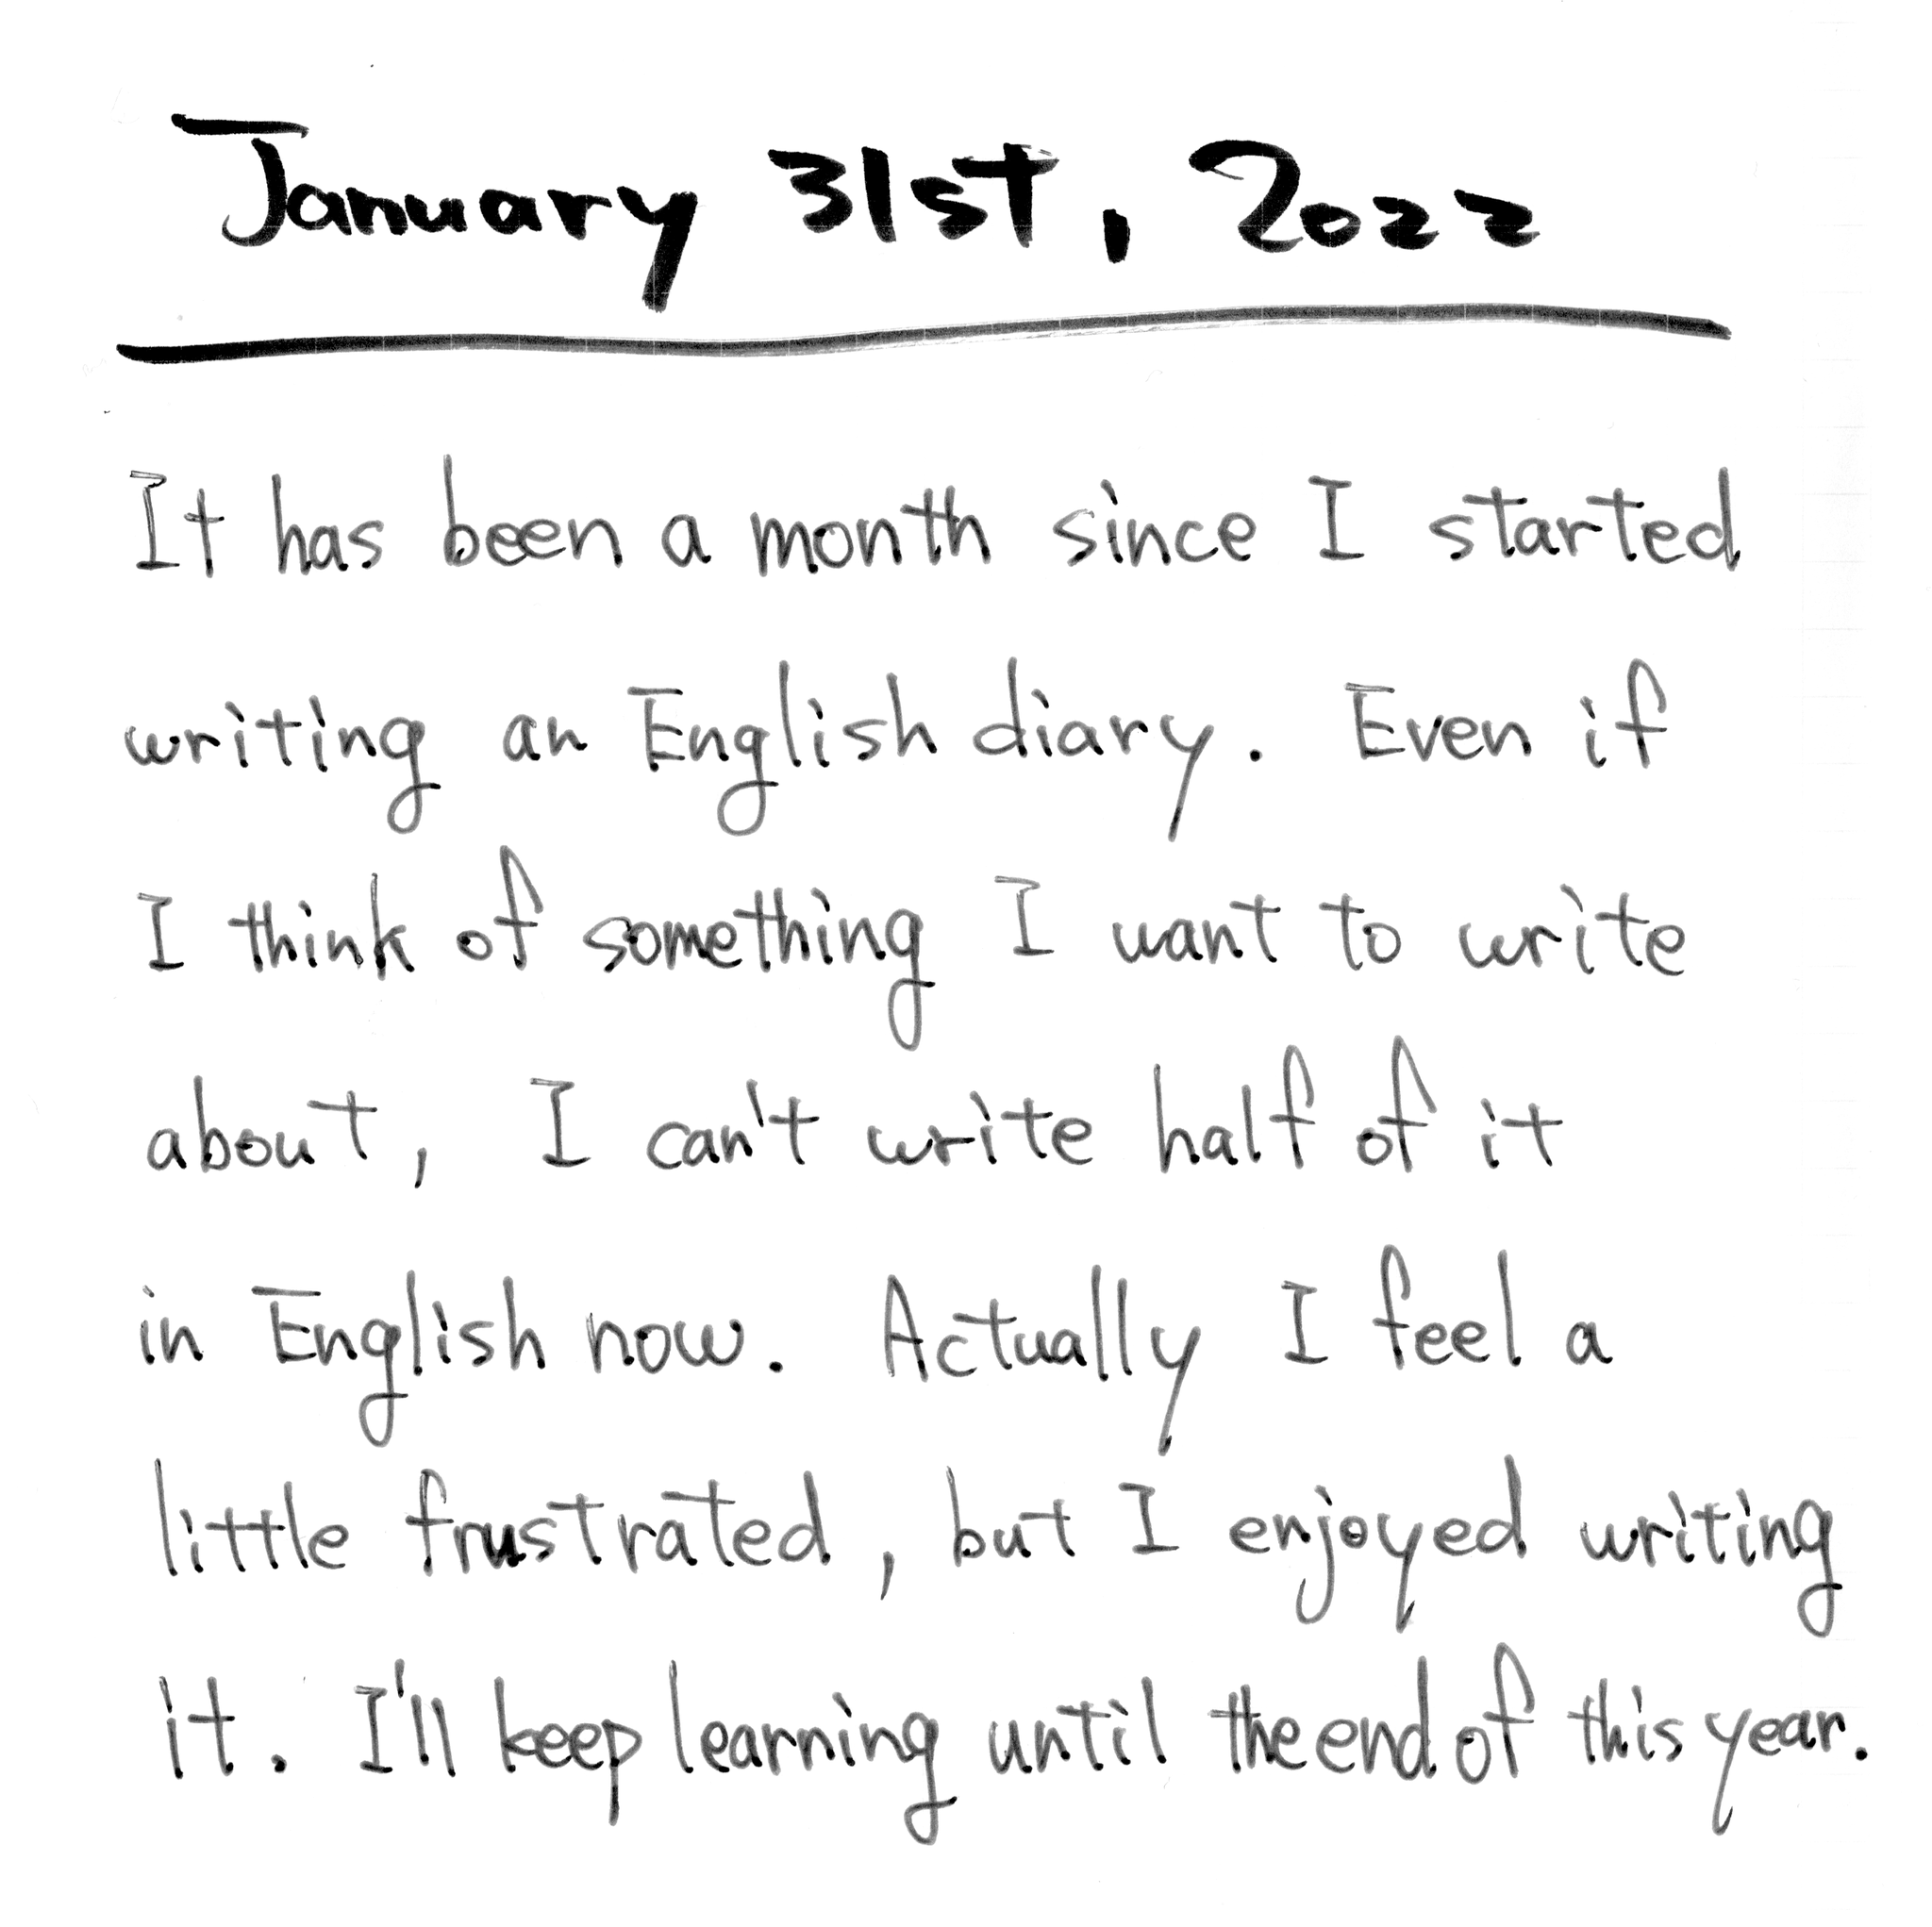 January 31st, 2022
It has been a month since I started
writing an English diary. Even if
I think of something I want to write
about, I can't write half of it
in English now. Actually I feel a
little frustrated, but I enjoyed writing
it. I'll keep learning until the end of this year.